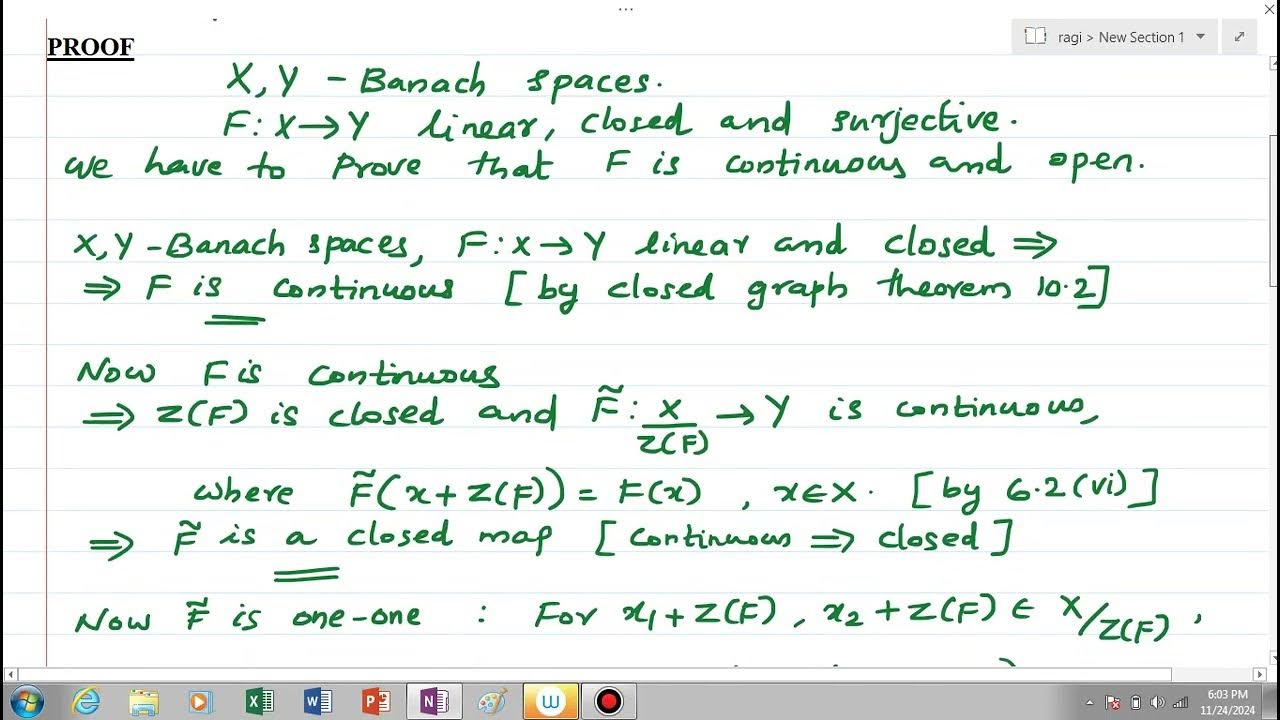 ...
ragi > New Section 1
PROOF
X, Y - Banach spaces.
F: X → Y linear, closed and surjective.
We have to prove that F is continuous and open.
X, Y - Banach spaces, F: X → Y linear and closed ⇒
⇒ F is continuous [by closed graph theorem 10.2]
Now F is continuous
⇒ Z(F) is closed and F̃: X/Z(F) → Y is continuous,
where F̃(x + Z(F)) = F(x), x ∈ X. [by 6.2(vi)]
⇒ F̃ is a closed map [continuous ⇒ closed]
Now F̃ is one-one : For x₁ + Z(F), x₂ + Z(F) ∈ X/Z(F),
6:03 PM
11/24/2024